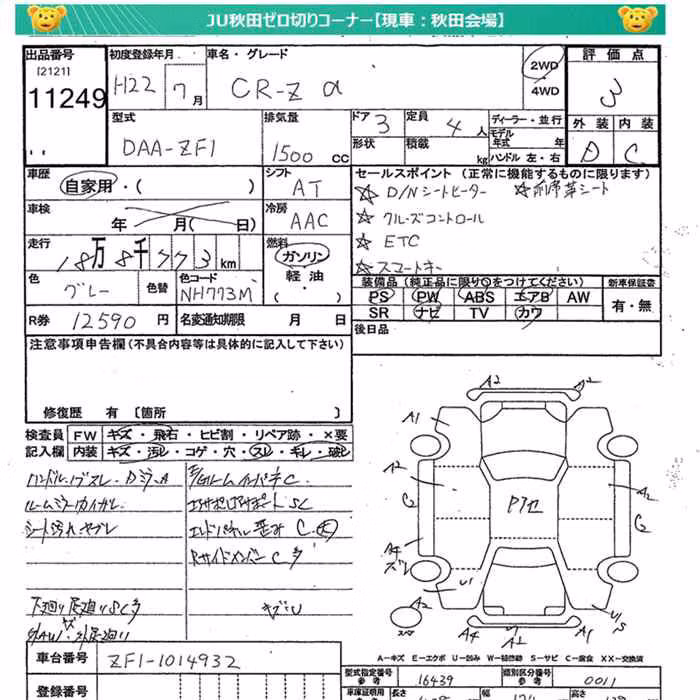 JU秋田ゼロ切りコーナー【現車：秋田会場】
出品番号 初度登録年月 車名・グレード 評価点
[2121] H22 7月 CR-Z α 2WD 3
11249 4WD
型式 排気量 ドア 3 定員 4人 ディーラー・並行 外装 内装
DAA-ZF1 1500cc 形状 積載 kg モデル年式 年 D C
ハンドル 左・右
車歴 シフト セールスポイント（正常に機能するものに限ります）
自家用・（ ） AT ☆ D/Nシートヒーター ☆前席革シート
車検 冷房 ☆ クルーズコントロール
年 月（ 日） AAC ☆ ETC
走行 燃料 ☆ スマートキー
18万8千773km ガソリン
色 色替 色コード 軽油 装備品（純正品に限り○をつけてください） 新車保証書
グレー NH773M ・（ ） PS PW ABS エアB AW 有・無
R券 12590円 名変通知期限 月 日 SR ナビ TV カワ
注意事項申告欄（不具合内容等は具体的に記入して下さい） 後日品
修復歴 有 〔箇所 〕
検査員 FW キズ・飛石・ヒビ割・リペア跡・×要
記入欄 内装 キズ・汚レ・コゲ・穴・スレ・キレ・破レ
ルームミラー
シート汚れ ヤブレ
コアサポ
C 大
RサイドメンバーC 多
下廻り
A2 A2
A1
A2 A2
C2 C2
Pガセ
A4
ズレ
U1
A2 U1S
A4 A2 A1
A－キズ E－エクボ U－凹み W－補修跡 S－サビ C－腐食 XX－交換済
車台番号 ZF1-1014932
型式指定番号 参考 16439 類別区分番号 参考 0011
登録番号 車庫証明用 参考 長さ 幅 高さ